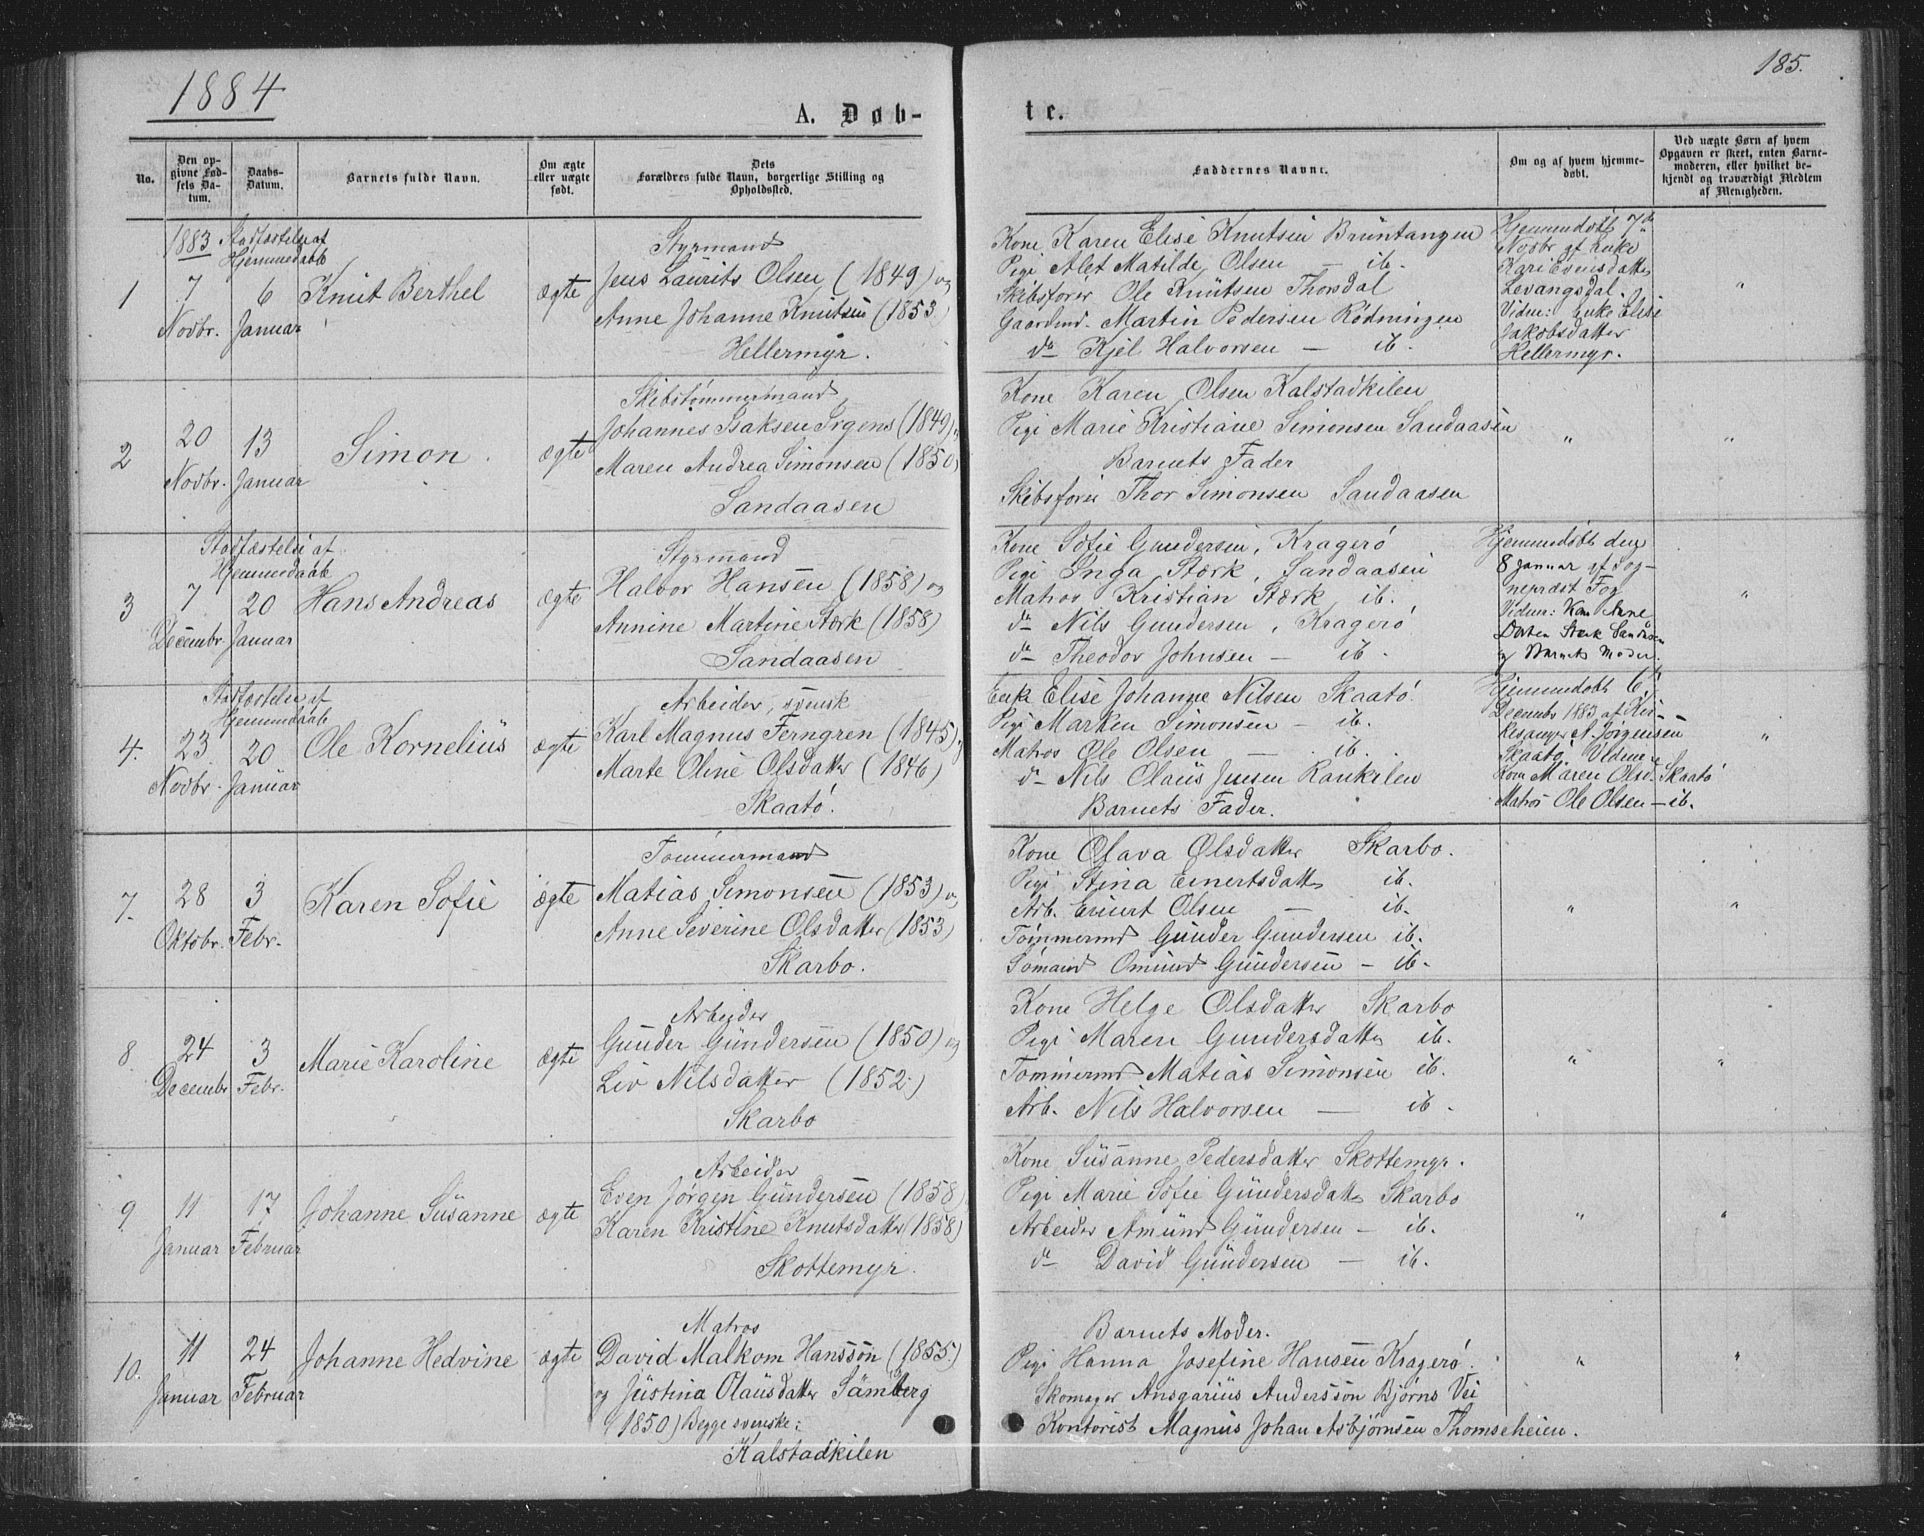 1884
185.
A. Døb-
te.
No.
Den op-
givne Fød-
sels Da-
tum.
Daabs-
Datum.
Barnets fulde Navn.
Om ægte
eller uægte
født.
Dets
Forældres fulde Navn, borgerlige Stilling og
Opholdssted.
Faddernes Navne.
Om og af hvem hjemme-
døbt.
Ved uægte Børn af hvem
Opgaven er skeet, enten Barne-
moderen, eller hvilket be-
kjendt og troværdigt Medlem
af Menigheden.
1
1883
7
Novbr.
Stadfæstelse af
Hjemmedaab
6
Januar
Knut Berthel
ægte
Styrmand
Jens Laurits Olsen (1849) og
Anne Johanne Knutsen (1853)
Hellermyr.
Kone Karen Elise Knutsen Bruntangen
Pige Alet Matilde Olsen — ib.
Skibsfører Ole Knutsen Thorsdal
Gaardmd. Martin Pedersen Rödningen
do Kjel Halvorsen — ib.
Hjemmedøbt 7de
Novbr af Enke
Kari Evensdatter
Levangsdal.
Vidne: Enke Elise
Jakobsdatter
Hellermyr.
"
2
20
Novbr.
13
Januar
Simon.
ægte
Skibstömmermand
Johannes Isaksen Irgens (1849) og
Maren Andrea Simonsen (1850)
Sandaasen
Kone Karen Olsen Kalstadkilen
Pige Marie Kristiane Simonsen Sandaasen
Barnets Fader
Skibsfører Thor Simonsen Sandaasen
"
"
3
Stadfæstelse af
Hjemmedaab
7
Decembr
20
Januar
Hans Andreas
ægte
Styrmand
Halvor Hansen (1858) og
Annine Martine Stærk (1858)
Sandaasen
Kone Sofie Gundersen, Kragerö
Pige Inga Stærk, Sandaasen
Matros Kristian Stærk ib.
do Nils Gundersen, Kragerö
do Theodor Johnsen — ib.
Hjemmedøbt den
8 Januar af Sog-
nepræst Fog
Vidner: Kone Anne
Dorten Stærk Sandåsen
og Barnets Moder.
"
4.
Stadfæstelse af
Hjemmedaab
23
Novbr.
20
Januar
Ole Kornelius
ægte
Arbeider, svensk
Karl Magnus Ferngren (1845) og
Marte Oline Olsdatter (1846)
Skaatö.
Enke Elise Johanne Nilsen Skaatö.
Pige Marken Simonsen — ib.
Matros Ole Olsen — ib.
do Nils Olaus Jensen Rankilen
Barnets Fader.
Hjemmedøbt 6te
Decembr 1883 af Kir-
kesanger N. Jörgensen
Skaatö. Vidner:
Kone Maren Olsd. Skaatö
Matros Ole Olsen — ib.
"
7.
28
Oktobr.
3
Febr.
Karen Sofie
ægte
Tömmermand
Matias Simonsen (1853) og
Anne Severine Olsdatter (1853)
Skarbo.
Kone Olava Olsdatter Skarbo.
Pige Stina Einertsdatter ib.
Arb. Einert Olsen — ib.
Tömmermd Gunder Gundersen ib.
Sömand Omund Gundersen — ib.
"
"
8
24
Decembr
3
Febr.
Marie Karoline
ægte
Arbeider
Gunder Gundersen (1850) og
Liv Nilsdatter (1852.)
Skarbo
Kone Helge Olsdatter Skarbo
Pige Maren Gundersdatter ib.
Tömmermd Matias Simonsen ib.
Arb. Nils Halvorsen — ib.
"
"
9
11
Januar
17
Februar
Johanne Susanne
ægte
Arbeider
Even Jörgen Gundersen (1858)
Karen Kristine Knutsdatter (1858)
Skottemyr.
Kone Susanne Pedersdatter Skottemyr.
Pige Marie Sofie Gundersdatter Skarbo
Arbeider Amund Gundersen — ib.
do David Gundersen — ib.
"
"
10.
11
Januar
24
Februar
Johanne Hedvine
ægte
Matros
David Malkom Hanssön (1855.)
og Justina Olausdatter Sämberg
(1850) Begge svenske:
Kalstadkilen
Barnets Moder.
Pige Hanna Josefine Hansen Kragerö.
Skomager Ansgarius Anderssön Bjørns Vei
Kontorist Magnus Johan Asbjørnsen Thomseheien.
"
"